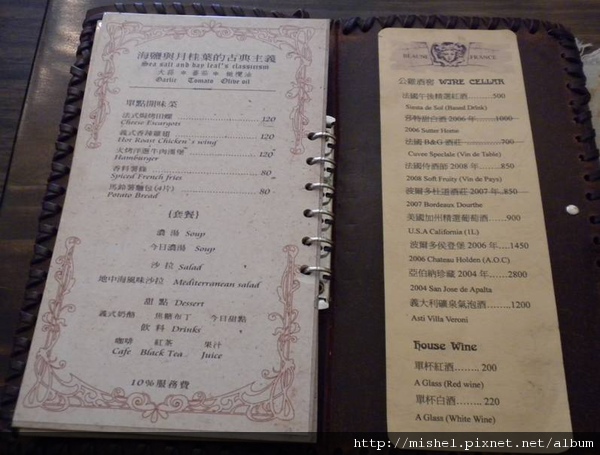 海鹽與月桂葉的古典主義
Sea salt and bay leaf's classicism
大蒜 蕃茄 橄欖油
Garlic Tomato Olive oil
單點開味菜
法式焗烤田螺 120
Cheese Escargots
義式香辣雞翅 120
Hot Roast Chicken's wing
火烤浮選牛肉漢堡 120
Hamburger
香料薯條 80
Spiced French fries
馬鈴薯麵包(4片) 80
Potato Bread
{套餐}
濃湯 Soup
今日濃湯 Soup
沙拉 Salad
地中海風味沙拉 Mediterranean salad
甜點 Dessert
義式奶酪 焦糖布丁 今日甜點
飲料 Drinks
咖啡 紅茶 果汁
Cafe Black Tea Juice
10%服務費
BEAUNE FRANCE
公雞酒窖 WINE CELLAR
法國午後精選紅酒 500
Siesta de Sol (Based Drink)
莎特甜白酒 2006 年 1000
2006 Sauter Home
法國 B&G 酒莊 700
Cuvee Speciale (Vin de Table)
法國侍酒師 2008 年 850
2008 Soft Fruity (Vin de Pays)
波爾多杜道酒莊 2007 年 850
2007 Bordeaux Dourthe
美國加州精選葡萄酒 900
U.S.A California (1L)
波爾多侯登堡 2006 年 1450
2006 Chateau Holden (A.O.C)
亞伯納珍藏 2004 年 2800
2004 San Jose de Apalta
義大利礦泉氣泡酒 1200
Asti Villa Veroni
House Wine
單杯紅酒 200
A Glass (Red wine)
單杯白酒 220
A Glass (White Wine)
http://mishel.pixnet.net/album